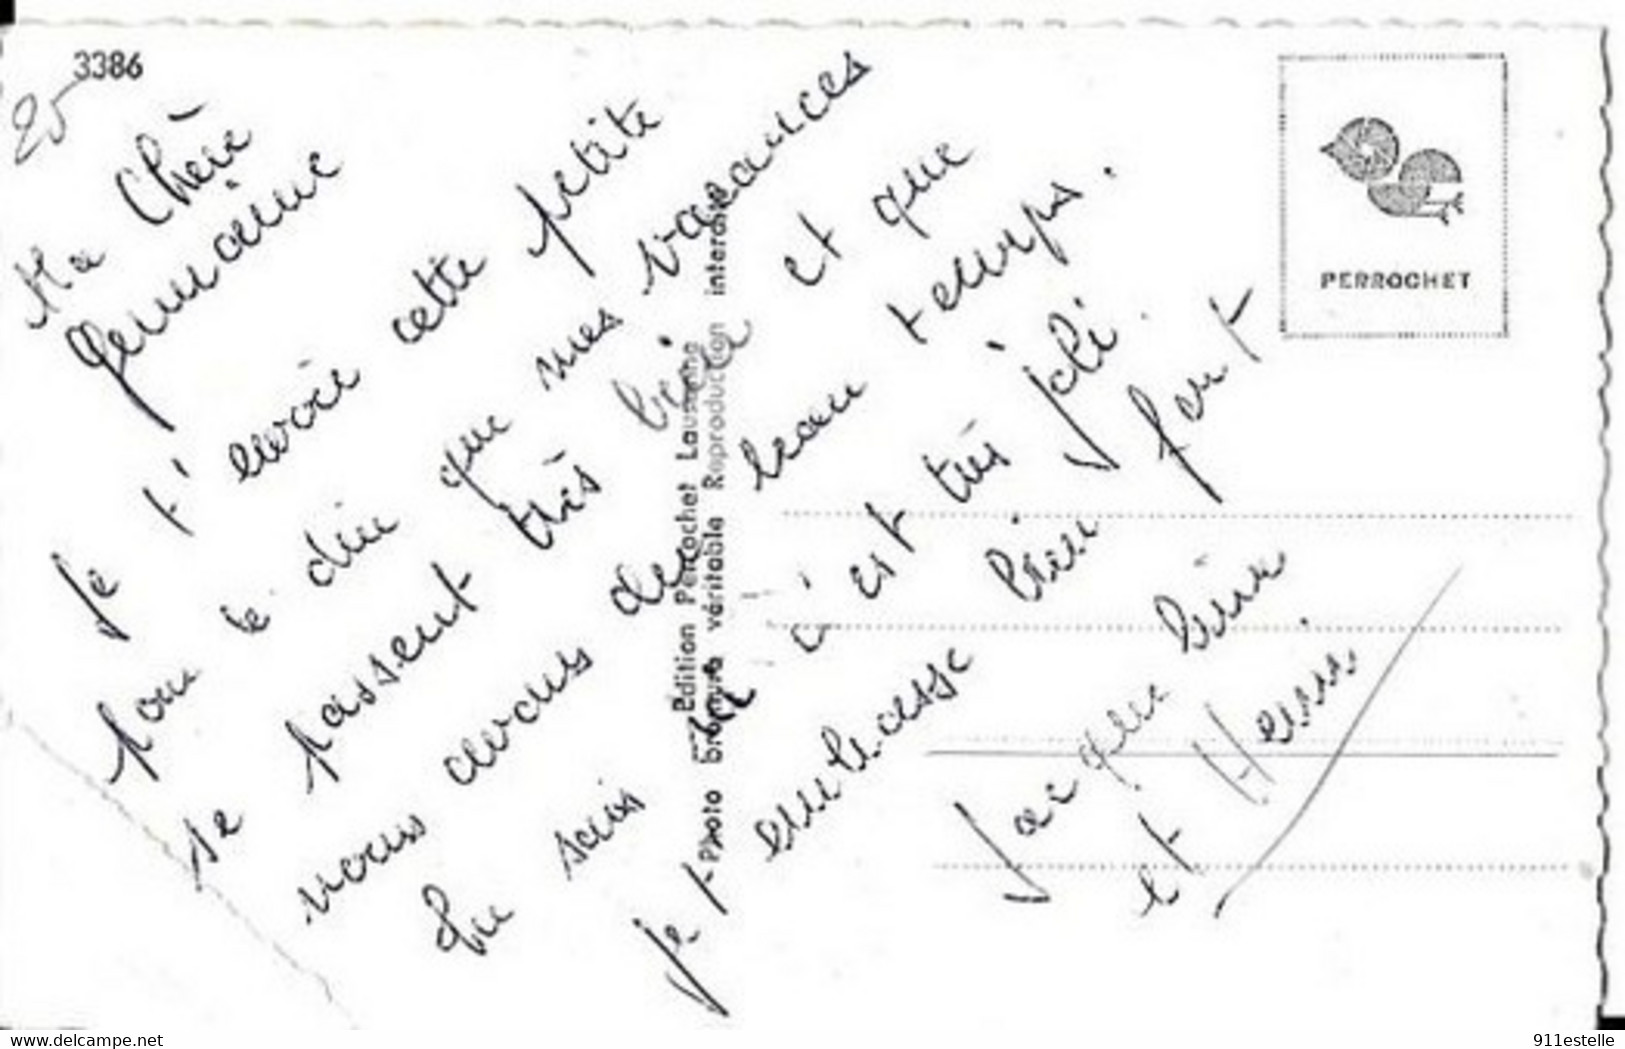 3386
25
Ma Chère
Germaine
Je t'envoie cette petite
pour te dire que mes vacances
se passent très bien et que
nous avons du beau temps.
suis c'est très joli
Je t embrasse bien fort
Jacqueline
et Henri
Edition Perrochet Lausanne
Photo bromure véritable Reproduction interdite
PERROCHET
www.delcampe.net
911estelle